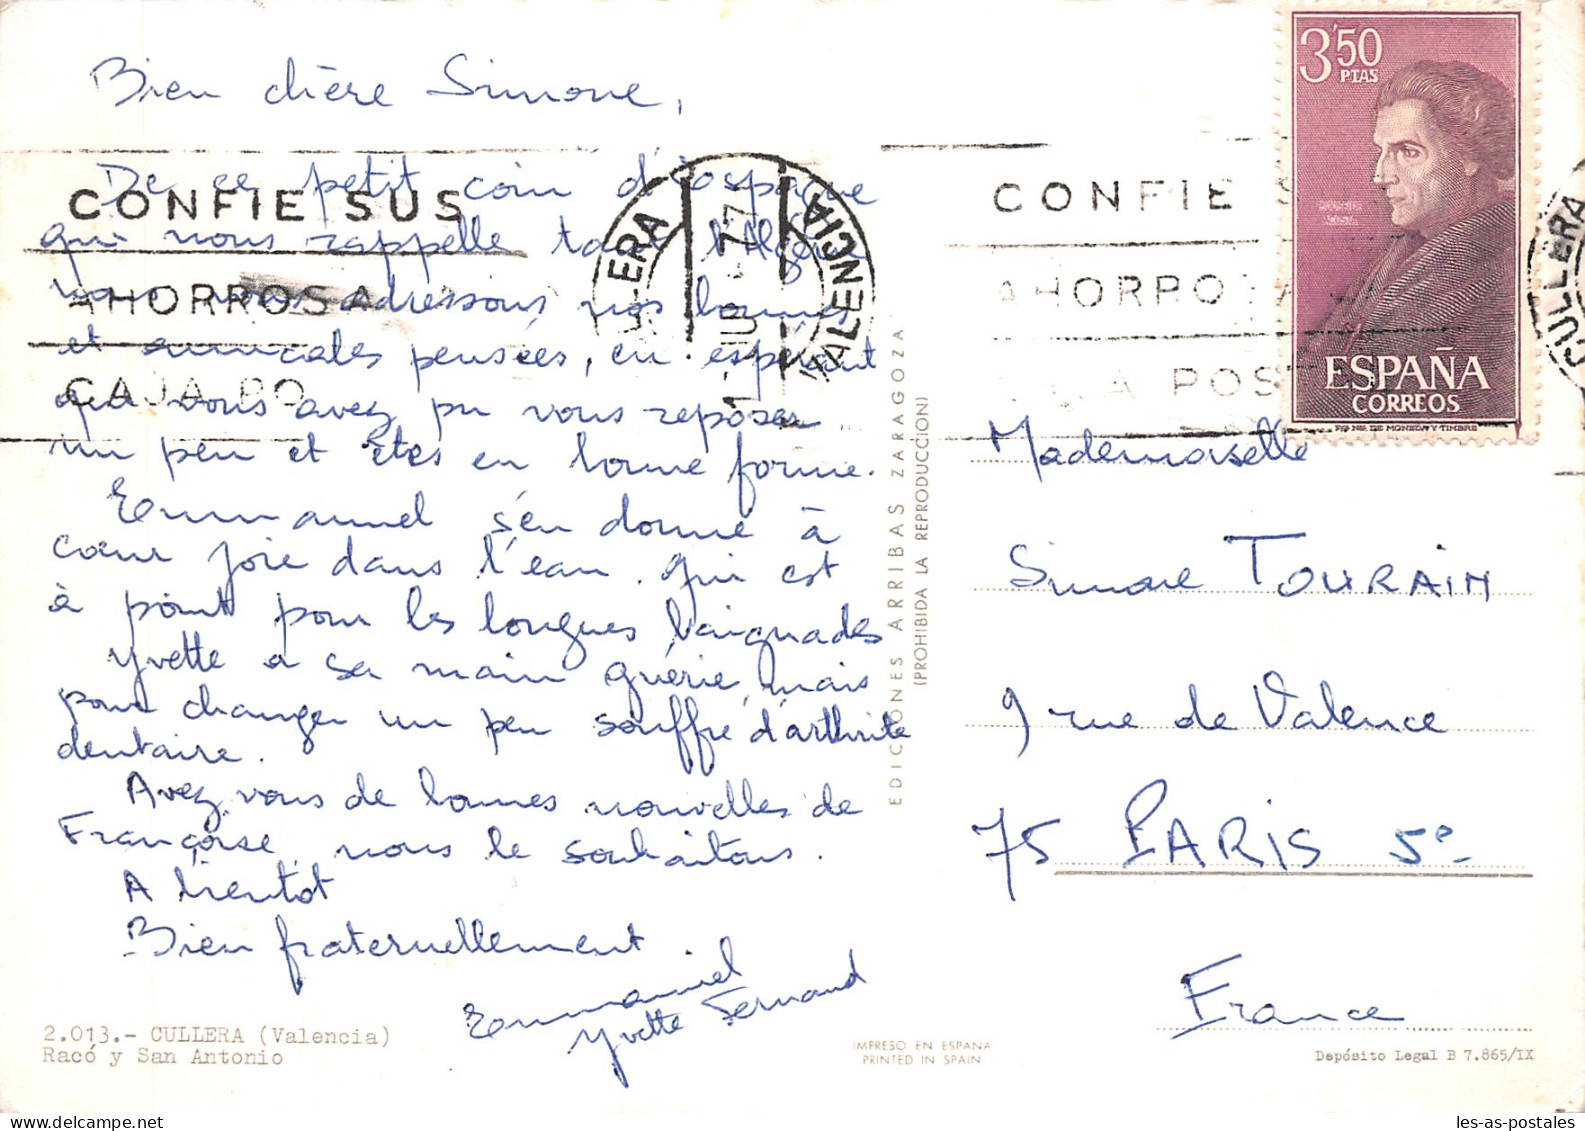 Bien chère Simone,
De ce petit coin d'Espagne
qui nous rappelle tant l'Algérie
nous vous adressons nos bonnes
et amicales pensées, en espérant
que vous avez pu vous reposer
un peu et êtes en bonne forme.
Emmanuel s'en donne à
cœur joie dans l'eau qui est
à point pour les longues baignades
Yvette a sa main guérie, mais
pour changer un peu souffre d'arthrite
dentaire.
Avez vous de bonnes nouvelles de
Françoise, nous le souhaitons.
A bientôt
Bien fraternellement
Emmanuel
Yvette Fernand
2.013.- CULLERA (Valencia)
Racó y San Antonio
CONFIE SUS
AHORROS A
CAJA PO
CULLERA
VALENCIA
EDICIONES ARRIBAS ZARAGOZA
(PROHIBIDA LA REPRODUCCION)
IMPRESO EN ESPAÑA
PRINTED IN SPAIN
CONFIE S
AHORROS A
LA POST
3'50
PTAS
ESPAÑA
CORREOS
CULLERA
Mademoiselle
Simone TOURAIN
9 rue de Valence
75 PARIS 5e
France
Depósito Legal B 7.865/IX
les-as-postales